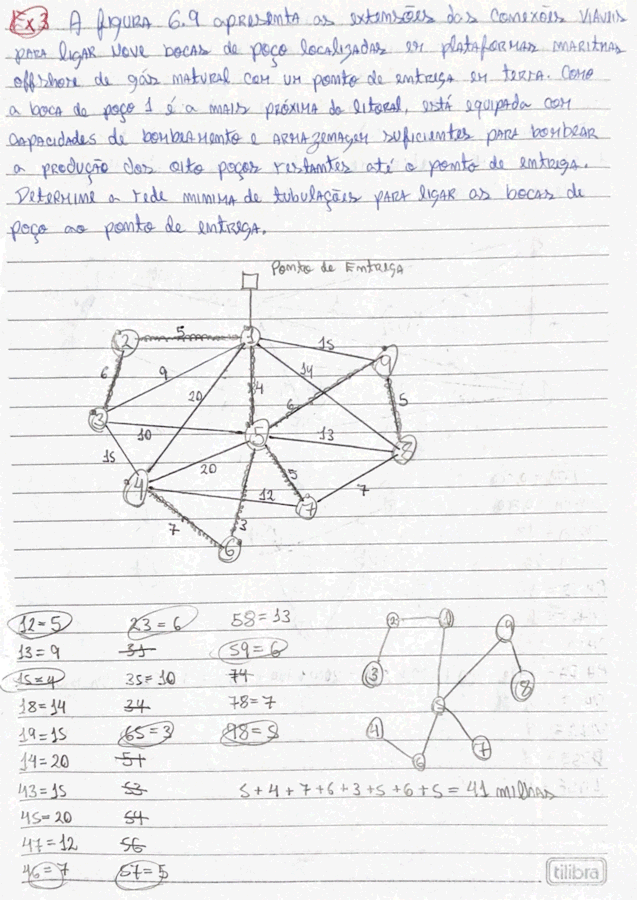 Ex3 A figura 6.9 apresenta as extensões das conexões VIAVEIS
PARA ligar Nove bocas de poço localizadas em plataformas maritmas
offshore de gás natural com um ponto de entrega em terra. Como
a boca de poço 1 é a mais próxima do litoral, está equipada com
capacidades de bombeamento e ARMAZENAGEM suficientes PARA bombear
a produção dos oito poços restantes até o ponto de entrega.
Determine a rede minima de tubulações PARA ligar as bocas de
poço ao ponto de entrega.
Ponto de Entrega
2 5 1 15 9
6 9 20 4 14 6 5
3 10 5 13 8
15 20 5 7
4 12 7
7 3
6
12=5 23=6 58=13
13=9 31 59=6
15=4 35=10 74
18=14 34 78=7
19=15 65=3 98=5
14=20 51
43=15 53
45=20 54
47=12 56
46=7 57=5
2 1 9
3 8
5
4 7
6
5+4+7+6+3+5+6+5=41 milhas
tilibra